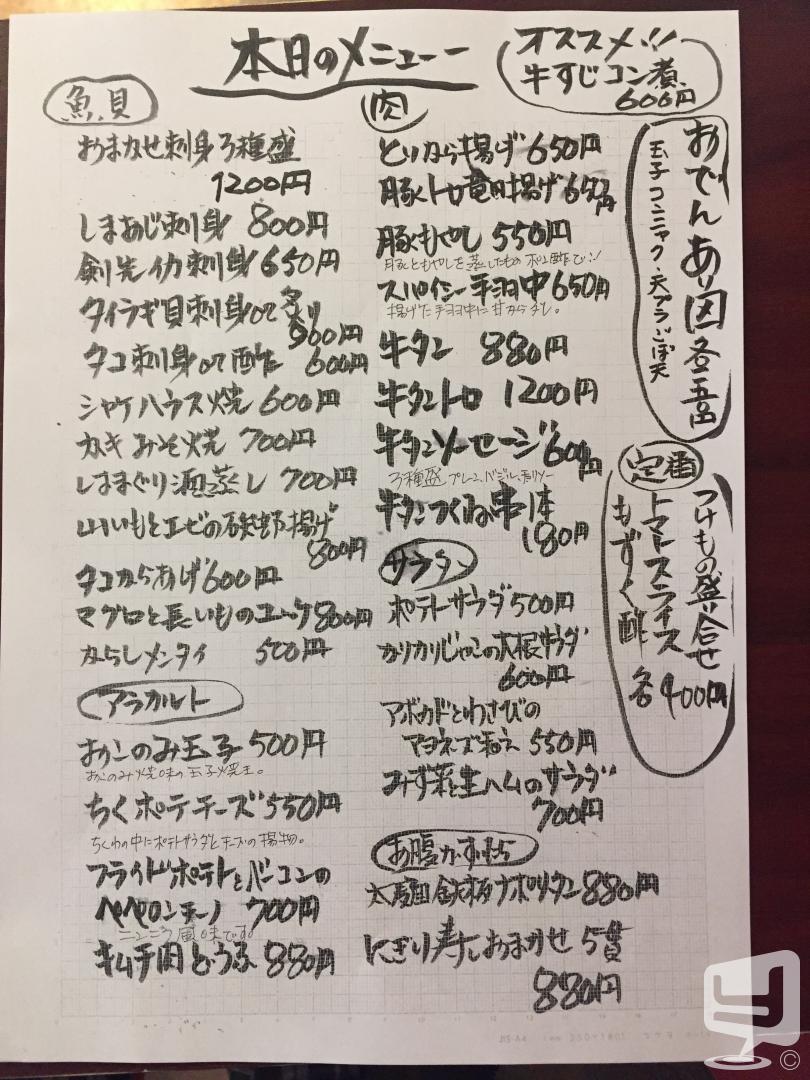 本日のメニュー
オススメ!!
牛すじコン煮
600円
魚貝
おまかせ刺身3種盛
1200円
しまあじ刺身 800円
剣先イカ刺身 650円
タイラギ貝刺身or炙り
900円
タコ刺身or酢 600円
シャケハラス焼 600円
カキみそ焼 700円
はまぐり酒蒸し 700円
山いもとエビの磯部揚げ
800円
タコからあげ 600円
マグロと長いものユッケ 800円
からしメンタイ 500円
アラカルト
おこのみ玉子 500円
おこのみ焼味の玉子焼き。
ちくポテチーズ 550円
ちくわの中にポテトサラダとチーズの揚物。
フライドポテトとベーコンの
ペペロンチーノ 700円
風味です。
キムチ肉どうふ 880円
肉
とりから揚げ 650円
豚トロ竜田揚げ 650円
豚もやし 550円
豚ともやしを蒸したもの ポン酢で!!
スパイシー手羽中 650円
揚げた手羽中に甘からダレ。
牛タン 880円
牛タントロ 1200円
牛タンソーセージ 600円
3種盛 プレーン、バジル、チョリソー
牛タンつくね串1本
180円
サラダ
ポテトサラダ 500円
カリカリじゃこの大根サラダ
600円
アボカドとわさびの
マヨネーズ和え 550円
みず菜と生ハムのサラダ
700円
お腹かず持ち
太麺鉄板ナポリタン 880円
にぎり寿しおまかせ 5貫
880円
おでんあり〼
玉子 コンニャク・天プラ ごぼ天
定番
つけもの盛合せ
トマトスライス
もずく酢
各400円
©